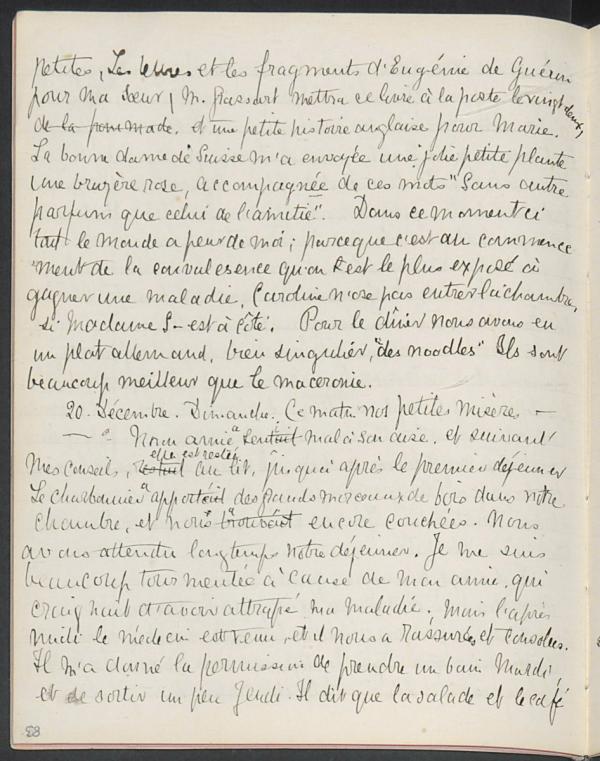 petites, Les lettres et les fragments d'Eugénie de Guérin
pour ma Sœur, M. Grassart mettra ce livre à la poste le vingt deux,
de la pommade, et une petite histoire anglaise pour Marie.
La bonne dame de Suisse m'a envoyée une jolie petite plante
une bruyère rose, accompagnée de ces mots "Sans autre
parfum que celui de l'amitié". Dans ce moment ci
tout le monde a peur de moi; parceque c'est au commence
ment de la convalesence qu'on est le plus exposé à
gagner une maladie, Caroline n'ose pas entrer la chambre,
si Madame S— est à côté. Pour le dîner nous avons eu
un plat allemand, bien singulier, "des noodles" Ils sont
beaucoup meilleur que le maceronie.
20. Décembre. Dimanche. Ce matin nos petites misères —
— Mon amie sentait mal à son aise, et suivant
mes conseils, elle est restée restait au lit, jusqu'à après le premier déjeuner
Le charbonnier apportait des grands morceaux de bois dans notre
chambre, et nous a trouvait encore couchées. Nous
avons attendu longtemps notre déjeuner. Je me suis
beaucoup tourmentée à cause de mon amie, qui
craignait d'avoir attrapé ma maladie; mais l'après
midi le médecin est venu, et il nous a rassurées et consolées.
Il m'a donné la permission de prendre un bain Mardi,
et de sortir un peu Jeudi. Il dit que la salade et le café
53